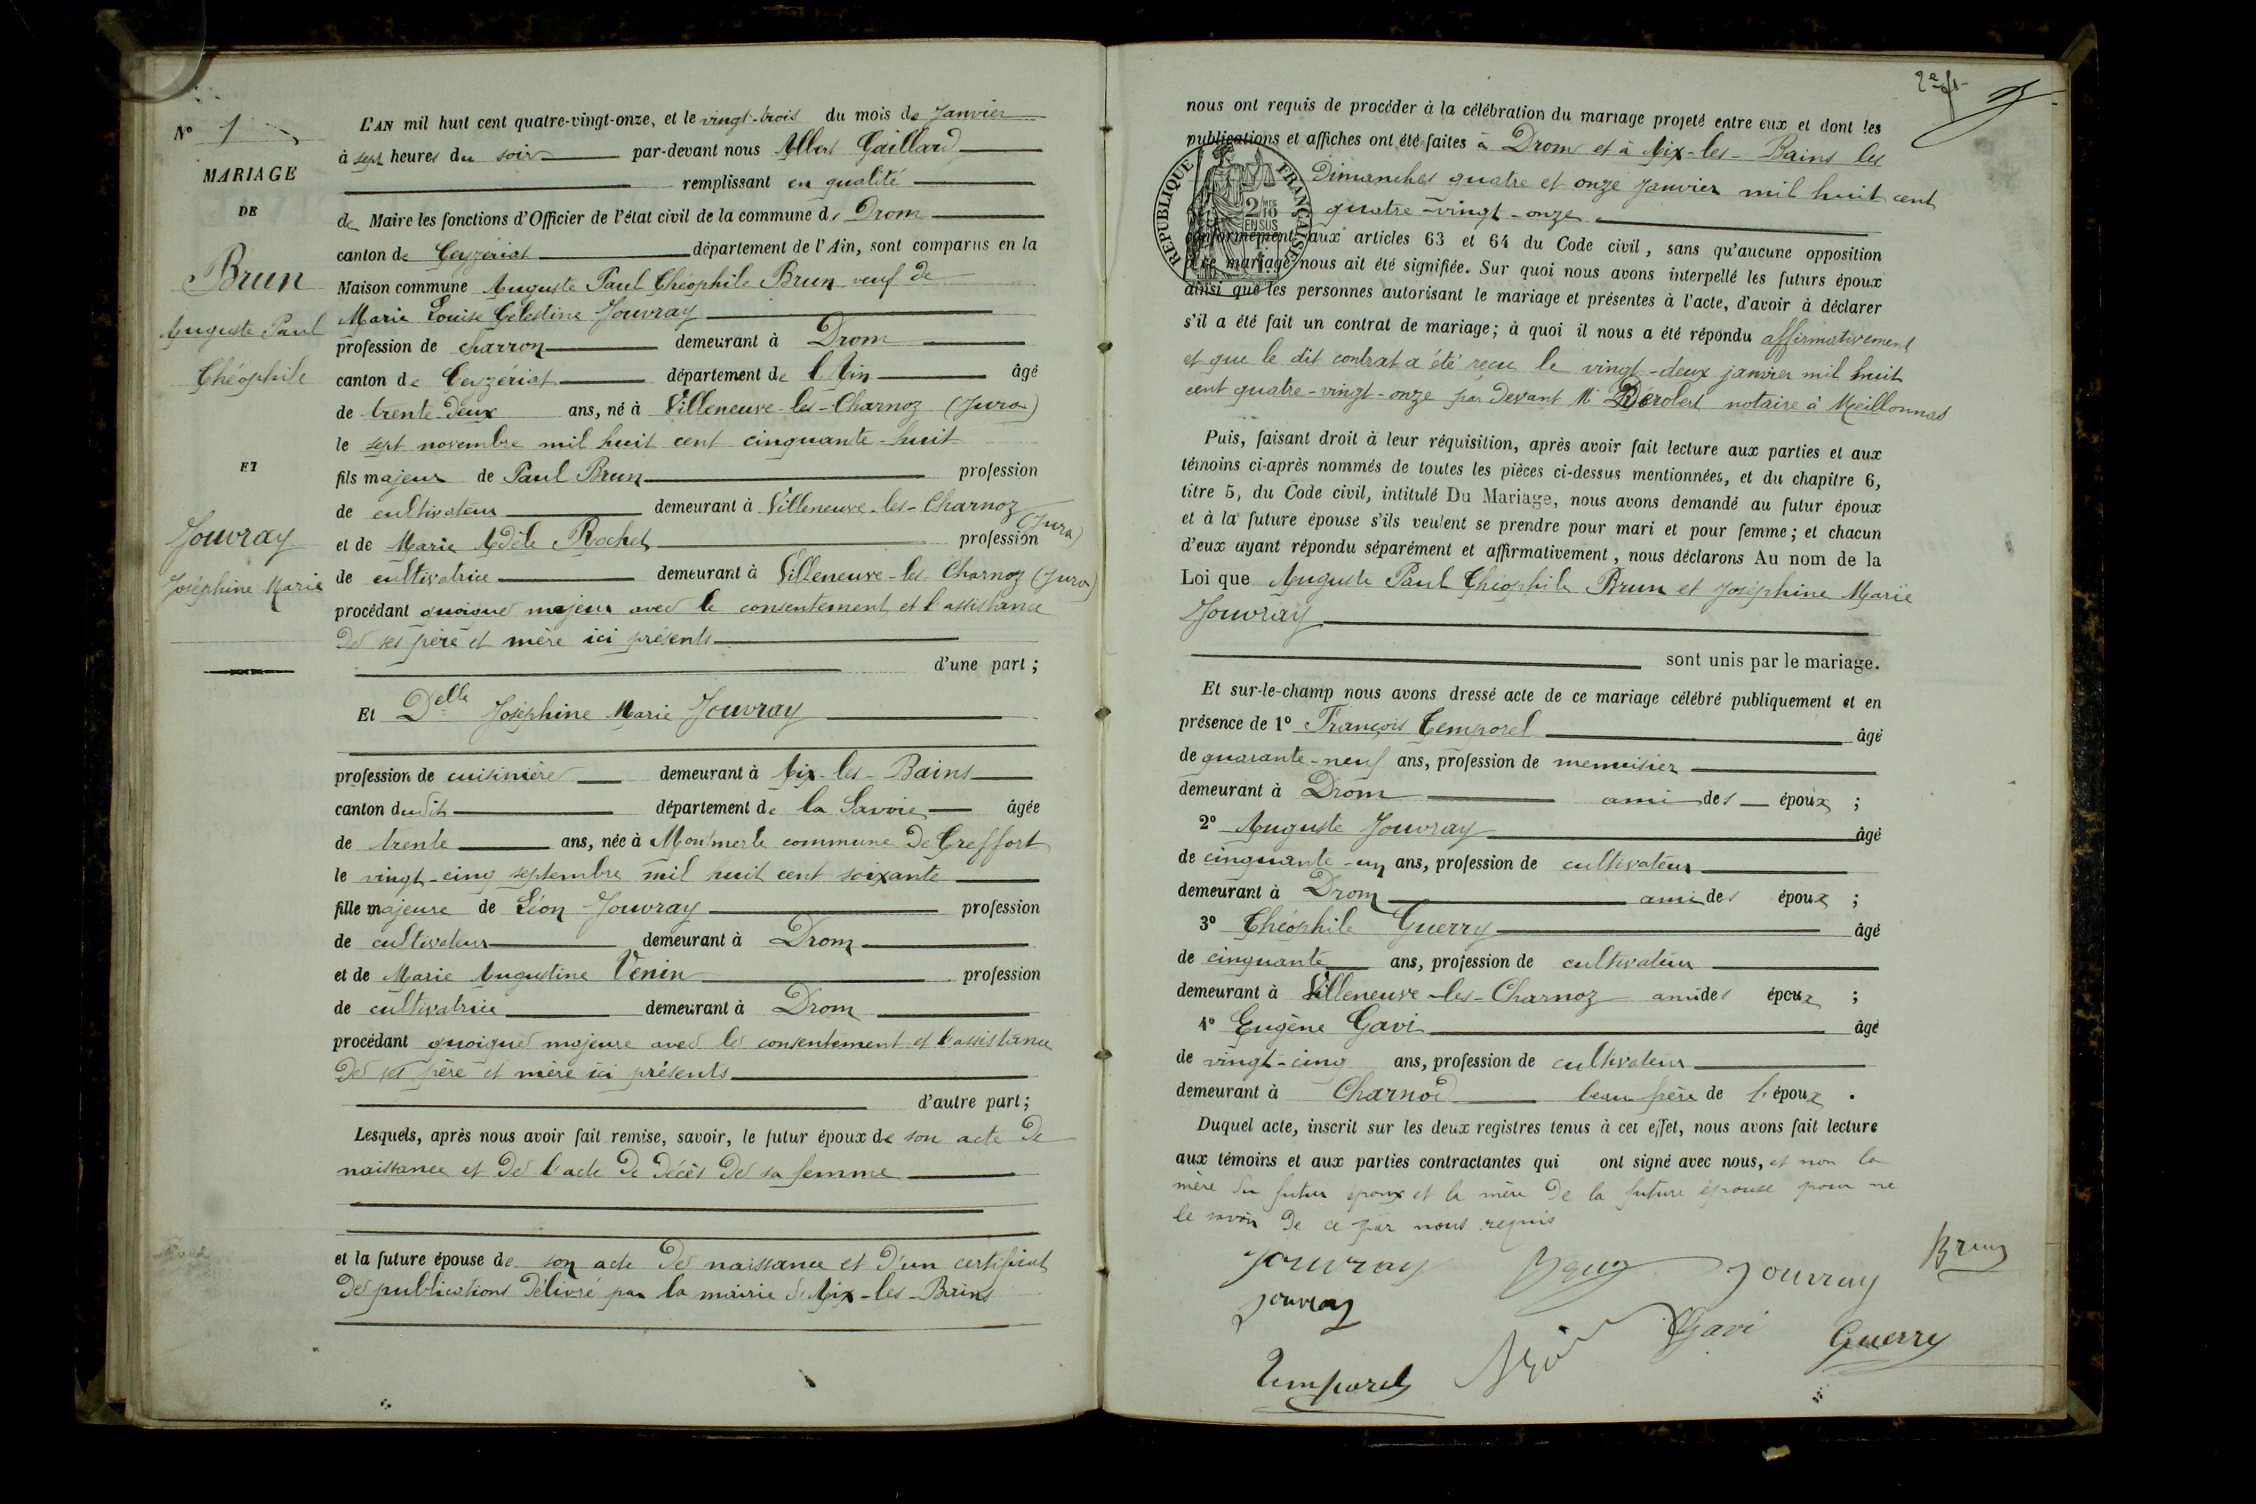 N° 1
MARIAGE
DE
Brun
Auguste Paul
Théophile
ET
Jouvray
Joséphine Marie
L'AN mil huit cent quatre-vingt-onze, et le vingt-trois du mois de Janvier
à sept heures du soir par-devant nous Albert Gaillard
remplissant en qualité
de Maire les fonctions d'Officier de l'état civil de la commune de Drom
canton de Ceyzériat département de l'Ain, sont comparus en la
Maison commune Auguste Paul Théophile Brun veuf de
Marie Louise Célestine Jouvray
profession de charron demeurant à Drom
canton de Ceyzériat département de l'Ain âgé
de trente deux ans, né à Villeneuve-les-Charnoz (Jura)
le sept novembre mil huit cent cinquante-huit
fils majeur de Paul Brun profession
de cultivateur demeurant à Villeneuve-les-Charnoz (Jura)
et de Marie Adèle Rochet profession
de cultivatrice demeurant à Villeneuve-les-Charnoz (Jura)
procédant quoique majeur avec le consentement et l'assistance
de ses père et mère ici présents
d'une part;
Et Delle Joséphine Marie Jouvray
profession de cuisinière demeurant à Aix-les-Bains
canton dudit département de la Savoie âgée
de trente ans, née à Montmerle commune de Treffort
le vingt-cinq septembre mil huit cent soixante
fille majeure de Léon Jouvray profession
de cultivateur demeurant à Drom
et de Marie Augustine Venin profession
de cultivatrice demeurant à Drom
procédant quoique majeure avec le consentement et l'assistance
de ses père et mère ici présents
d'autre part;
Lesquels, après nous avoir fait remise, savoir, le futur époux de son acte de
naissance et de l'acte de décès de sa femme
et la future épouse de son acte de naissance et d'un certificat
de publications délivré par la mairie d'Aix-les-Bains
nous ont requis de procéder à la célébration du mariage projeté entre eux et dont les
publications et affiches ont été faites à Drom et à Aix-les-Bains les
Dimanches quatre et onze Janvier mil huit cent
quatre-vingt-onze
RÉPUBLIQUE FRANÇAISE
2/10 EN SUS
conformément aux articles 63 et 64 du Code civil, sans qu'aucune opposition
à ce mariage nous ait été signifiée. Sur quoi nous avons interpellé les futurs époux
ainsi que les personnes autorisant le mariage et présentes à l'acte, d'avoir à déclarer
s'il a été fait un contrat de mariage; à quoi il nous a été répondu affirmativement
et que le dit contrat a été reçu le vingt-deux janvier mil huit
cent quatre-vingt-onze par devant Me Dérobert notaire à Meillonnas
Puis, faisant droit à leur réquisition, après avoir fait lecture aux parties et aux
témoins ci-après nommés de toutes les pièces ci-dessus mentionnées, et du chapitre 6,
titre 5, du Code civil, intitulé Du Mariage, nous avons demandé au futur époux
et à la future épouse s'ils veulent se prendre pour mari et pour femme; et chacun
d'eux ayant répondu séparément et affirmativement, nous déclarons Au nom de la
Loi que Auguste Paul Théophile Brun et Joséphine Marie
Jouvray
sont unis par le mariage.
Et sur-le-champ nous avons dressé acte de ce mariage célébré publiquement et en
présence de 1° François Temporel âgé
de quarante-neuf ans, profession de menuisier
demeurant à Drom ami des époux ;
2° Auguste Jouvray âgé
de cinquante-un ans, profession de cultivateur
demeurant à Drom ami des époux ;
3° Théophile Guerry âgé
de cinquante ans, profession de cultivateur
demeurant à Villeneuve-les-Charnoz ami des époux ;
4° Eugène Gavi âgé
de vingt-cinq ans, profession de cultivateur
demeurant à Charnod beau frère de l'époux .
Duquel acte, inscrit sur les deux registres tenus à cet effet, nous avons fait lecture
aux témoins et aux parties contractantes qui ont signé avec nous, et non la
mère du futur époux et la mère de la future épouse pour ne
le savoir de ce par nous requis
Jouvray Brun Jouvray Brun
Jouvray
Gavi Guerry
Temporel